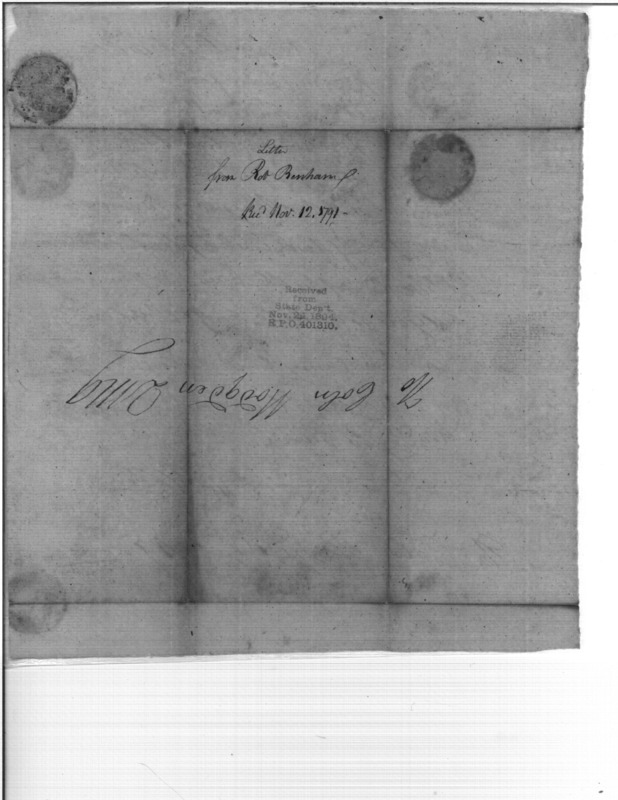 Letter
from Rob Benham
Recd Nov. 12. 1791 -
Received
from
State Dep't.
Nov. 22, 1894.
R.P.O. 401310.
To Coln Hodgden QMG